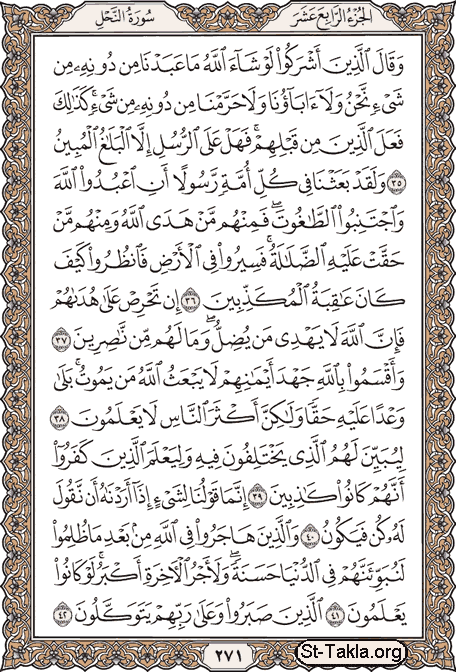 سُورَةُ النَّحۡلِ الجُزْءُ الرَّابِعَ عَشَرَ
وَقَالَ ٱلَّذِينَ أَشۡرَكُواْ لَوۡ شَآءَ ٱللَّهُ مَا عَبَدۡنَا مِن دُونِهِۦ مِن
شَيۡءٖ نَّحۡنُ وَلَآ ءَابَآؤُنَا وَلَا حَرَّمۡنَا مِن دُونِهِۦ مِن شَيۡءٖۚ كَذَٰلِكَ
فَعَلَ ٱلَّذِينَ مِن قَبۡلِهِمۡۚ فَهَلۡ عَلَى ٱلرُّسُلِ إِلَّا ٱلۡبَلَٰغُ ٱلۡمُبِينُ
٣٥ وَلَقَدۡ بَعَثۡنَا فِي كُلِّ أُمَّةٖ رَّسُولًا أَنِ ٱعۡبُدُواْ ٱللَّهَ
وَٱجۡتَنِبُواْ ٱلطَّٰغُوتَۖ فَمِنۡهُم مَّنۡ هَدَى ٱللَّهُ وَمِنۡهُم مَّنۡ
حَقَّتۡ عَلَيۡهِ ٱلضَّلَٰلَةُۚ فَسِيرُواْ فِي ٱلۡأَرۡضِ فَٱنظُرُواْ كَيۡفَ
كَانَ عَٰقِبَةُ ٱلۡمُكَذِّبِينَ ٣٦ إِن تَحۡرِصۡ عَلَىٰ هُدَىٰهُمۡ
فَإِنَّ ٱللَّهَ لَا يَهۡدِي مَن يُضِلُّۖ وَمَا لَهُم مِّن نَّٰصِرِينَ ٣٧
وَأَقۡسَمُواْ بِٱللَّهِ جَهۡدَ أَيۡمَٰنِهِمۡ لَا يَبۡعَثُ ٱللَّهُ مَن يَمُوتُۚ بَلَىٰ
وَعۡدًا عَلَيۡهِ حَقّٗا وَلَٰكِنَّ أَكۡثَرَ ٱلنَّاسِ لَا يَعۡلَمُونَ ٣٨
لِيُبَيِّنَ لَهُمُ ٱلَّذِي يَخۡتَلِفُونَ فِيهِ وَلِيَعۡلَمَ ٱلَّذِينَ كَفَرُوٓاْ
أَنَّهُمۡ كَانُواْ كَٰذِبِينَ ٣٩ إِنَّمَا قَوۡلُنَا لِشَيۡءٍ إِذَآ أَرَدۡنَٰهُ أَن نَّقُولَ
لَهُۥ كُن فَيَكُونُ ٤٠ وَٱلَّذِينَ هَاجَرُواْ فِي ٱللَّهِ مِنۢ بَعۡدِ مَا ظُلِمُواْ
لَنُبَوِّئَنَّهُمۡ فِي ٱلدُّنۡيَا حَسَنَةٗۖ وَلَأَجۡرُ ٱلۡأٓخِرَةِ أَكۡبَرُۚ لَوۡ كَانُواْ
يَعۡلَمُونَ ٤١ ٱلَّذِينَ صَبَرُواْ وَعَلَىٰ رَبِّهِمۡ يَتَوَكَّلُونَ ٤٢
٢٧١
St-Takla.org